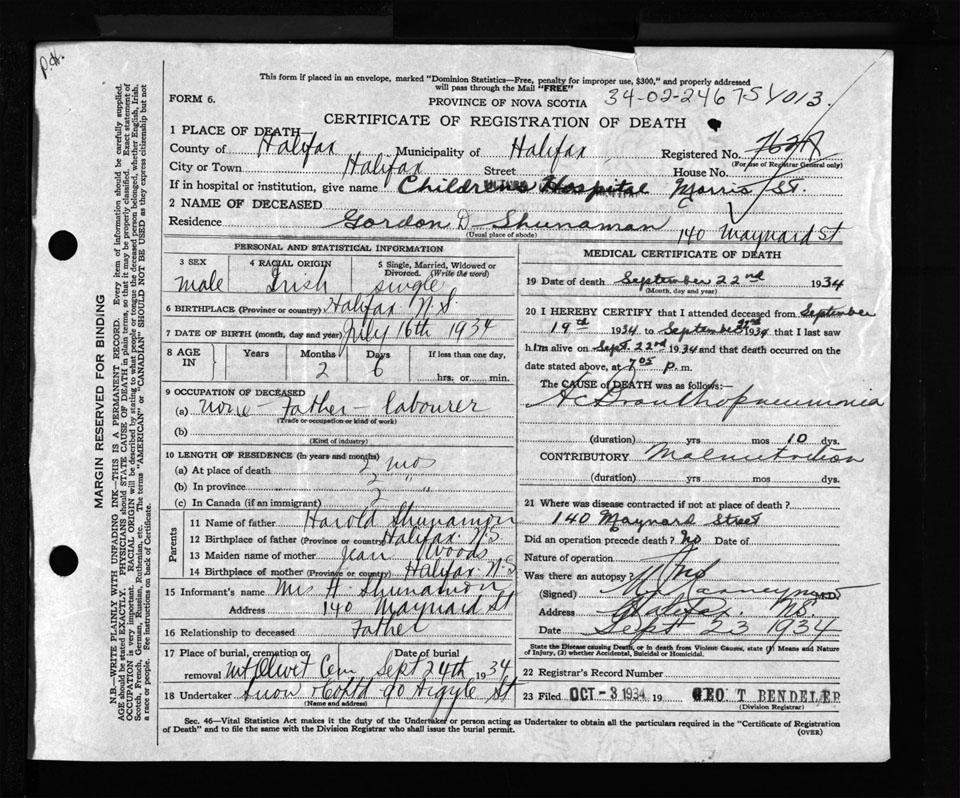 P.H.
This form if placed in an envelope, marked "Dominion Statistics—Free, penalty for improper use, $300," and properly addressed
will pass through the Mail "FREE"
FORM 6.
PROVINCE OF NOVA SCOTIA
34-02-24675 1/013.
CERTIFICATE OF REGISTRATION OF DEATH
1 PLACE OF DEATH—
County of Halifax Municipality of Halifax Registered No.
(For use of Registrar General only)
City or Town Halifax Street House No.
If in hospital or institution, give name Children's Hospital Morris St.
2 NAME OF DECEASED Gordon D Shunaman
Residence 140 Maynard St
(Usual place of abode)
PERSONAL AND STATISTICAL INFORMATION
3 SEX 4 RACIAL ORIGIN 5 Single, Married, Widowed or
Divorced. (Write the word)
male Irish single
6 BIRTHPLACE (Province or country) Halifax N.S.
7 DATE OF BIRTH (month, day and year) July 16th 1934
8 AGE IN Years Months Days If less than one day,
2 6 hrs. or min.
9 OCCUPATION OF DECEASED
(a) none - Father - labourer
(Trade or occupation or kind of work)
(b)
(Kind of industry)
10 LENGTH OF RESIDENCE (In years and months)
(a) At place of death 2 mos
(b) In province 2 "
(c) In Canada (if an immigrant) 2 "
Parents
11 Name of father Harold Shunamon
12 Birthplace of father (Province or country) Halifax. N.S.
13 Maiden name of mother Jean Woods
14 Birthplace of mother (Province or country) Halifax N.S
15 Informant's name Mrs H Shunamon
Address 140 Maynard St
16 Relationship to deceased Father
17 Place of burial, cremation or Date of burial
removal Mt Olivet Cem Sept 24th 1934
18 Undertaker Snow & Co Ltd 90 Argyle St
(Name and address)
MEDICAL CERTIFICATE OF DEATH
19 Date of death September 22nd 1934
(Month, day and year)
20 I HEREBY CERTIFY that I attended deceased from September
19th 1934 to September 1934 that I last saw
him alive on Sept. 22nd 1934 and that death occurred on the
date stated above, at 7.05 P. m.
The CAUSE of DEATH was as follows:—
(duration) yrs mos 10 dys.
CONTRIBUTORY Malnutrition
(duration) yrs mos dys.
21 Where was disease contracted if not at place of death?
140 Maynard Street
Did an operation precede death? No Date of
Nature of operation
Was there an autopsy? No
(Signed) M.D.
Address Halifax. NS
Date Sept 23 1934
State the Disease causing Death, or in Death from Violent Causes, state (1) Means and Nature
of Injury, (2) whether Accidental, Suicidal or Homicidal.
22 Registrar's Record Number
23 Filed OCT - 3 1934 19 GEO. T BENDELIER
(Division Registrar)
Sec. 46—Vital Statistics Act makes it the duty of the Undertaker or person acting as Undertaker to obtain all the particulars required in the "Certificate of Registration
of Death" and to file the same with the Division Registrar who shall issue the burial permit.
(OVER)
MARGIN RESERVED FOR BINDING
N.B.—WRITE PLAINLY WITH UNFADING INK—THIS IS A PERMANENT RECORD. Every item of information should be carefully supplied.
AGE should be stated EXACTLY. PHYSICIANS should STATE CAUSE OF DEATH in plain terms, so that it may be properly classified. Exact statement of
OCCUPATION is very important. RACIAL ORIGIN will be described by stating to what people or tongue the deceased person belonged, whether English, Irish,
Scotch, French, German, Russian, Ruthenian, etc. The terms "AMERICAN" or "CANADIAN" SHOULD NOT BE USED as they express citizenship but not
a race or people. See instructions on back of Certificate.